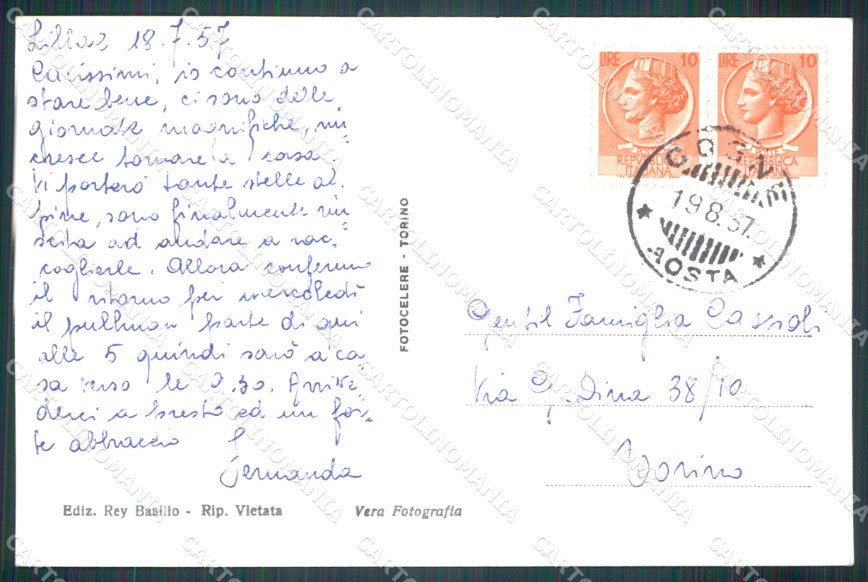 Lillaz 18.7.57
Carissimi, io continuo a
stare bene, ci sono delle
giornate magnifiche, mi
cresce tornare a casa.
Vi porterò tante stelle al
pine, sono finalmente riu
scita ad andare a rac-
coglierle. Allora confermo
il ritorno per mercoledì
il pullman parte di qui
alle 5 quindi sarò a ca
sa verso le 9.30. Arrive
derci a presto ed un for-
te abbraccio
Fernanda
Ediz. Rey Basilio - Rip. Vietata
Vera Fotografia
FOTOCELERE - TORINO
LIRE 10
REPVBBLICA
ITALIANA
LIRE 10
REPVBBLICA
ITALIANA
COGNE
19.8.57.
AOSTA
Gentil Famiglia
Via Dina 38/10
Torino
CARTOLINOMANIA